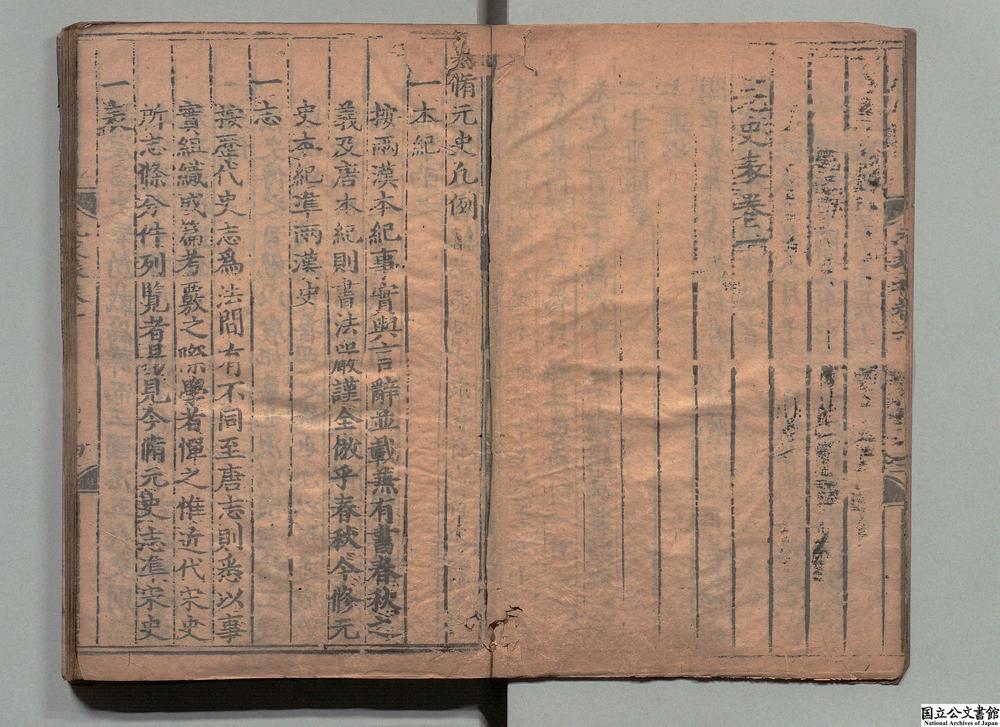 元史表卷一
纂脩元史凡例
一本紀
按兩漢本紀事實與言辭並載兼有書春秋之
義及唐本紀則書法嚴謹全倣乎春秋今修元
史本紀準兩漢史
一志
按歷代史志爲法間有不同至唐志則悉以事
實組織成篇考覈之際學者憚之惟近代宋史
所志條分件列覽者易見今脩元史志準宋史
一表
国立公文書館
National Archives of Japan